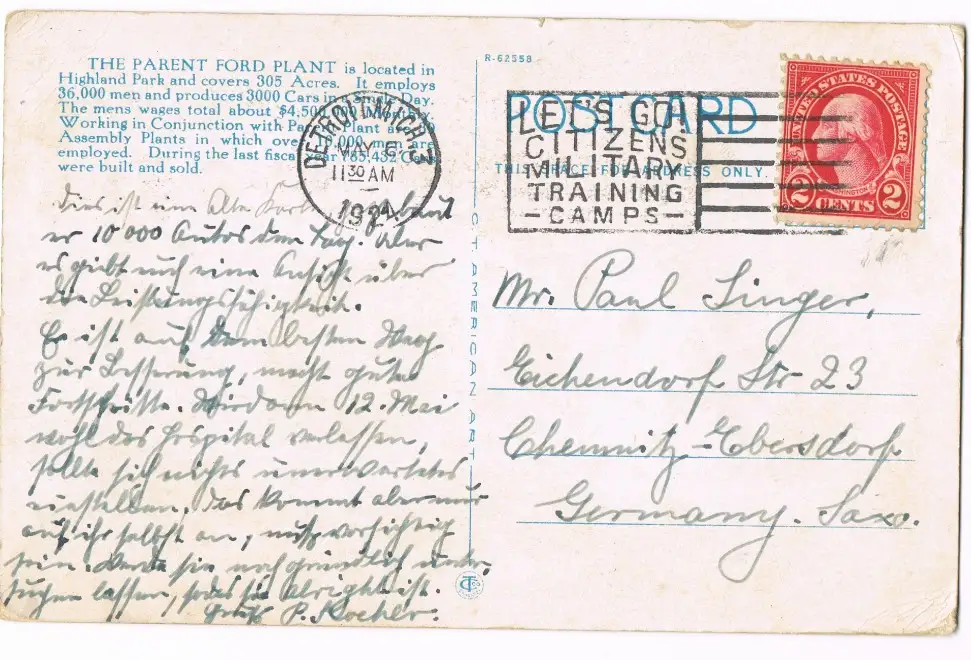 THE PARENT FORD PLANT is located in
Highland Park and covers 305 Acres. It employs
36,000 men and produces 3000 Cars in a Day.
The mens wages total about $4,500,
Working in Conjunction with Plant
Assembly Plants in which over are
employed. During the last fiscal year 785,432 Cars
were built and sold.
R-62558
POST CARD
THIS SPACE FOR ADDRESS ONLY.
DETROIT, MICH. 2
MAY 6
11 30 AM
1924
LET'S GO!
CITIZENS
MILITARY
TRAINING
-CAMPS-
UNITED STATES POSTAGE
WASHINGTON
2 CENTS 2
Dies ist eine Alte Karte baut
er 10 000 Autos den Tag. Aber
es gibt noch eine Ansicht über
die Leistungsfähigkeit.
Er ist auf dem besten Weg
zur Besserung, macht gute
Fortschritte. Wird am 12. Mai
wohl das Hospital verlassen,
sollte sich nichts unerwartetes
einstellen. Das kommt aber nur
auf ihr selbst an, muß vorsichtig
sein. Werde sie noch gründlich unter-
suchen lassen, sodas sie Alright ist.
Gruß P. Kocher.
C.T. AMERICAN ART
Mr. Paul Singer,
Eichendorf Str 23
Chemnitz-Ebersdorf
Germany. Saxo.